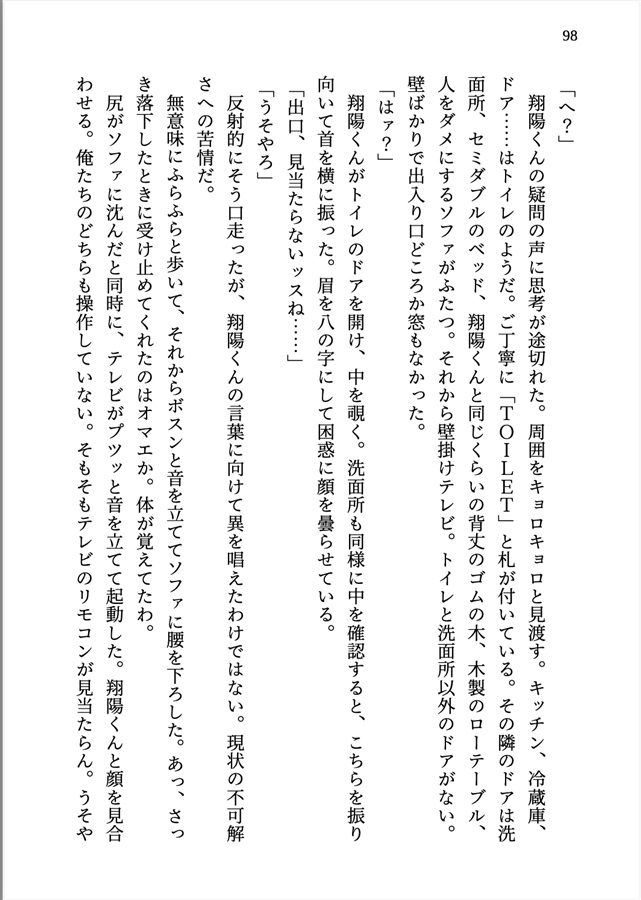 98
「へ？」
　翔陽くんの疑問の声に思考が途切れた。周囲をキョロキョロと見渡す。キッチン、冷蔵庫、
ドア……はトイレのようだ。ご丁寧に「ＴＯＩＬＥＴ」と札が付いている。その隣のドアは洗
面所、セミダブルのベッド、翔陽くんと同じくらいの背丈のゴムの木、木製のローテーブル、
人をダメにするソファがふたつ。それから壁掛けテレビ。トイレと洗面所以外のドアがない。
壁ばかりで出入り口どころか窓もなかった。
「はァ？」
　翔陽くんがトイレのドアを開け、中を覗く。洗面所も同様に中を確認すると、こちらを振り
向いて首を横に振った。眉を八の字にして困惑に顔を曇らせている。
「出口、見当たらないッスね……」
「うそやろ」
　反射的にそう口走ったが、翔陽くんの言葉に向けて異を唱えたわけではない。現状の不可解
さへの苦情だ。
　無意味にふらふらと歩いて、それからボスンと音を立ててソファに腰を下ろした。あっ、さっ
き落下したときに受け止めてくれたのはオマエか。体が覚えてたわ。
　尻がソファに沈んだと同時に、テレビがプツッと音を立てて起動した。翔陽くんと顔を見合
わせる。俺たちのどちらも操作していない。そもそもテレビのリモコンが見当たらん。うそや